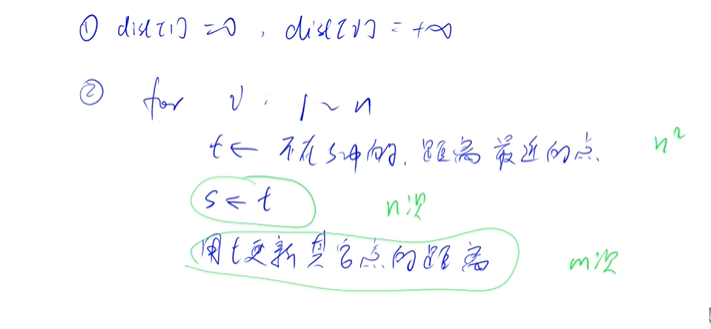 ① dist[1] = 0 , dist[v] = +∞
② for v : 1 ~ n
t ← 不在s中的, 距离最近的点. n²
s ← t n次
用t更新其它点的距离 m次